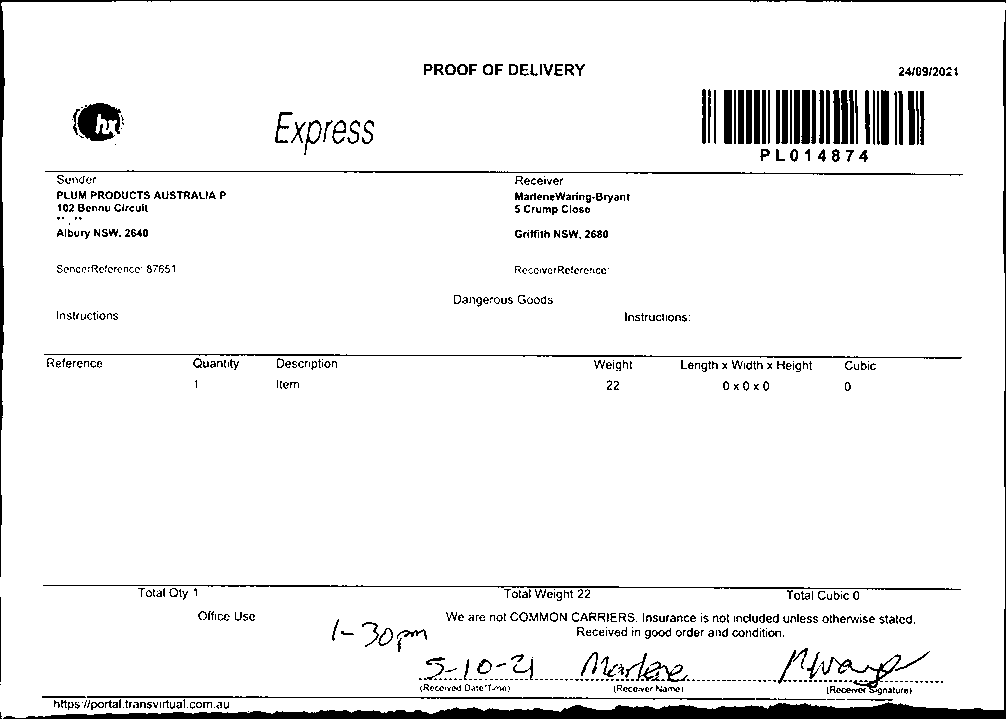 PROOF OF DELIVERY
24/09/2021
hx
Express
PL014874
Sender
PLUM PRODUCTS AUSTRALIA P
102 Bennu Circuit
**, **
Albury NSW, 2640
SenderReference: 87651
Receiver
MarleneWaring-Bryant
5 Crump Close
Griffith NSW, 2680
ReceiverReference:
Dangerous Goods
Instructions
Instructions:
Reference Quantity Description Weight Length x Width x Height Cubic
1 Item 22 0 x 0 x 0 0
Total Qty 1 Total Weight 22 Total Cubic 0
Office Use
We are not COMMON CARRIERS. Insurance is not included unless otherwise stated.
Received in good order and condition.
1-30pm
5-10-21 Marlene
(Received Date/Time) (Receiver Name) (Receiver Signature)
https://portal.transvirtual.com.au